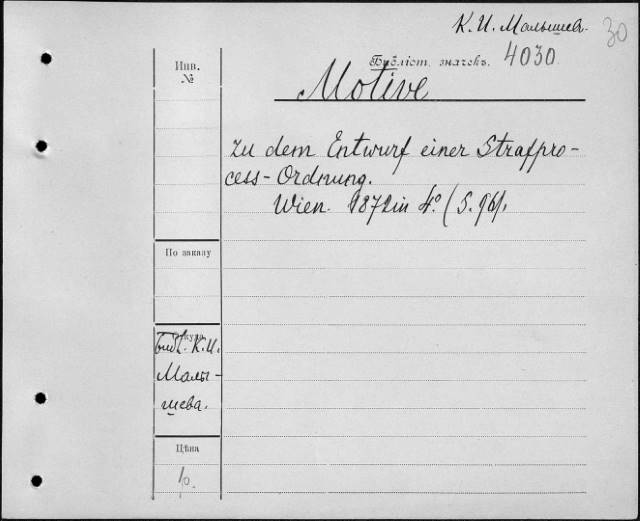 К. И. Малышев. 30
Инв.
№
Библіот. значекъ. 4030.
Motive
zu dem Entwurf einer Strafpro-
cess-Ordnung.
Wien. 1872 in 4° (S. 96).
По заказу
Откуда
Библ. К. И.
Малы-
шева.
Цѣна